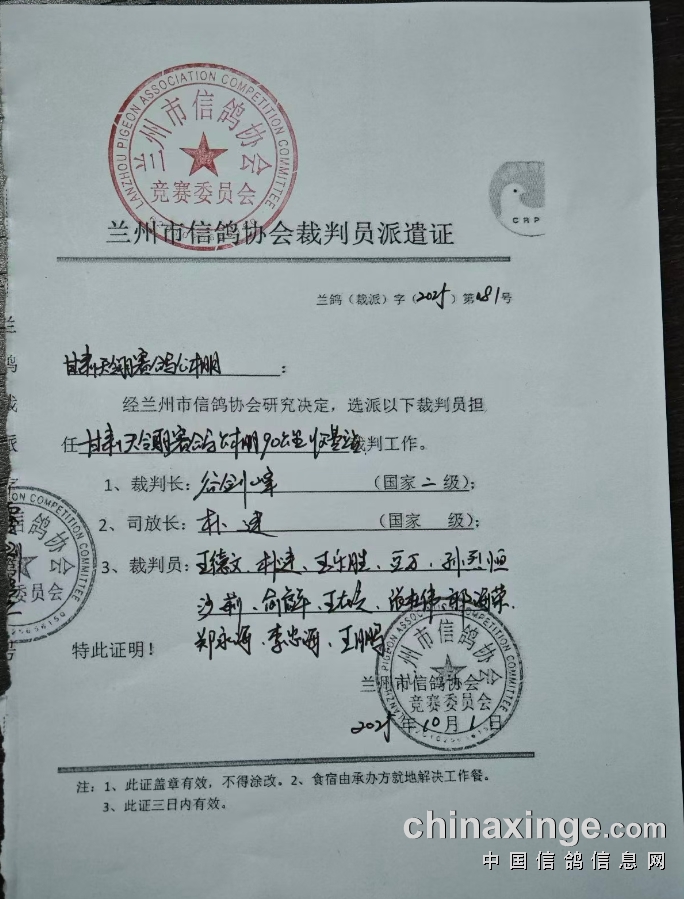 LANZHOU PIGEON ASSOCIATION COMPETITION COMMITTEE
兰州市信鸽协会
竞赛委员会
CRP
兰州市信鸽协会裁判员派遣证
兰鸽（裁派）字（2025）第081号
甘肃天翎赛鸽公棚：
经兰州市信鸽协会研究决定，选派以下裁判员担
任甘肃天翎赛鸽公棚90公里 裁判工作。
1、裁判长：谷剑峰（国家二级）；
2、司放长：朴建（国家 级）；
3、裁判员：王德文、朴建、王乐胜、豆万、孙烈恒
沙莉、俞 、王 、 伟、邢海荣、
郑永海、李忠海、王鹏
特此证明！
兰州市信鸽协会
竞赛委员会
兰州市信鸽协会
2025年10月1日
兰鸽裁派字
COMPETITION COMMITTEE
鸽协会
委员会
注：1、此证盖章有效，不得涂改。2、食宿由承办方就地解决工作餐。
3、此证三日内有效。
chinaxinge.com
中国信鸽信息网